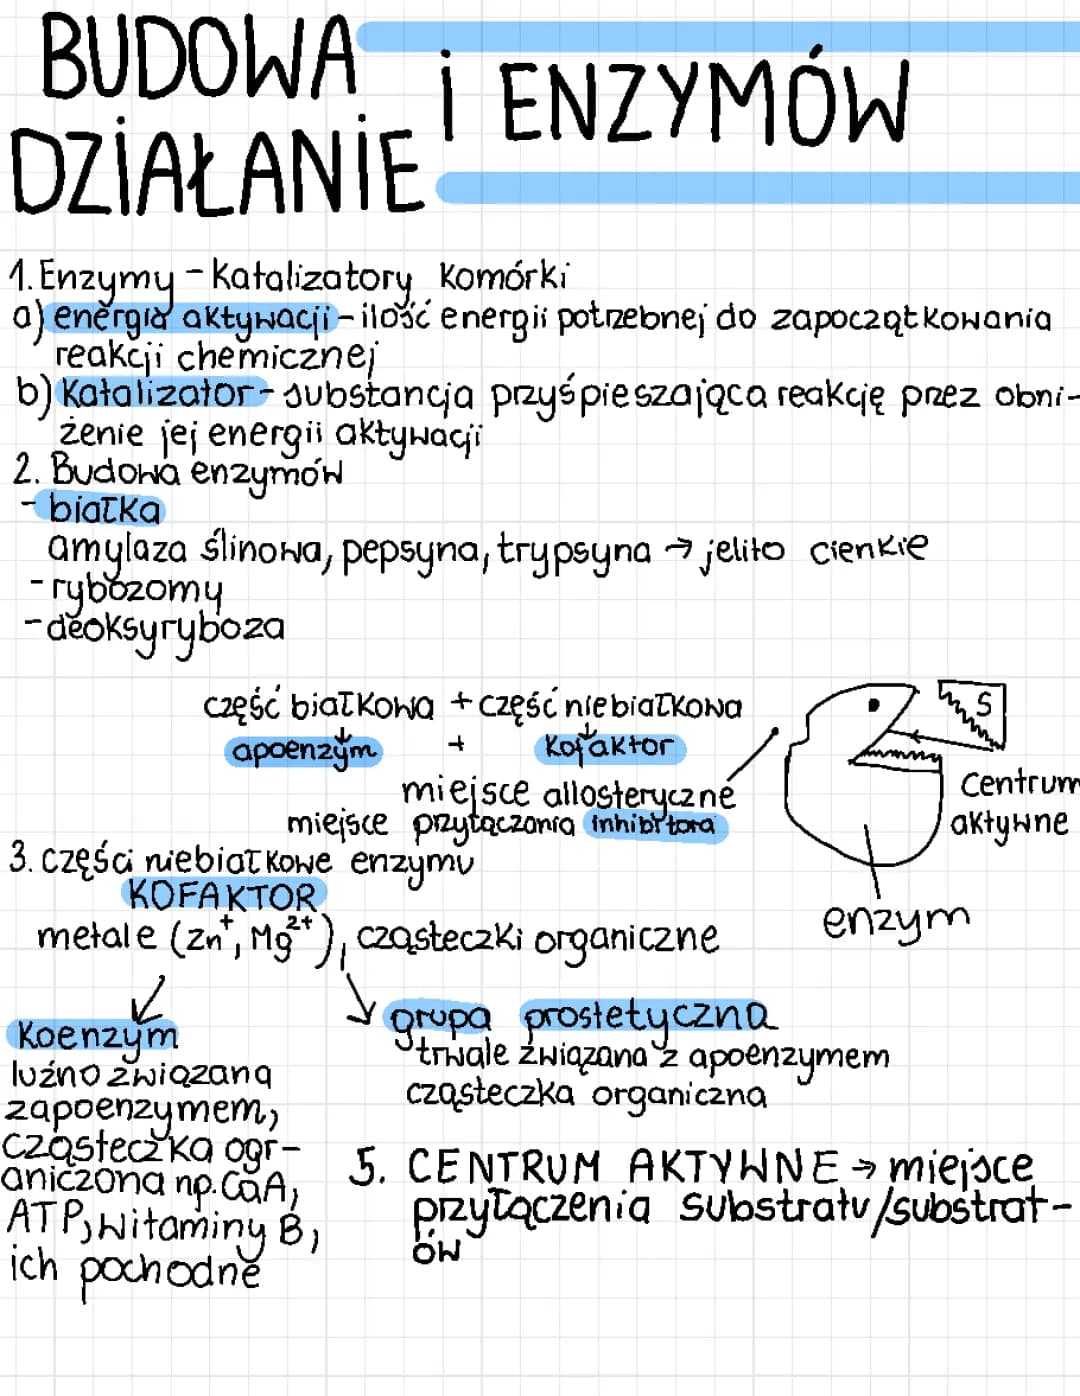 BUDOWA
DZIAŁANIE i ENZYMÓW
1. Enzymy - Katalizatory Komórki
a) energia aktywacji - ilość energii potrzebnej do zapoczątkowania
reakcji chemicznej
b) Katalizator - substancja przyśpieszająca reakcję przez obni-
żenie jej energii aktywacji
2. Budowa enzymów
- białka
amylaza ślinowa, pepsyna, trypsyna → jelito cienkie
- rybozomy
- deoksyryboza
część białkowa + część niebiałkowa
apoenzym + Kofaktor
S
miejsce allosteryczne
miejsce przyłączania inhibitora
Centrum
aktywne
enzym
3. części niebiałkowe enzymu
KOFAKTOR
metale (Zn⁺, Mg²⁺), cząsteczki organiczne
Koenzym
luźno związana
zapoenzymem,
cząsteczka ogr-
aniczona np. CoA,
ATP, witaminy B,
ich pochodne
grupa prostetyczna
trwale związana z apoenzymem
cząsteczka organiczna
5. CENTRUM AKTYWNE → miejsce
przyłączenia substratu/substrat-
ów